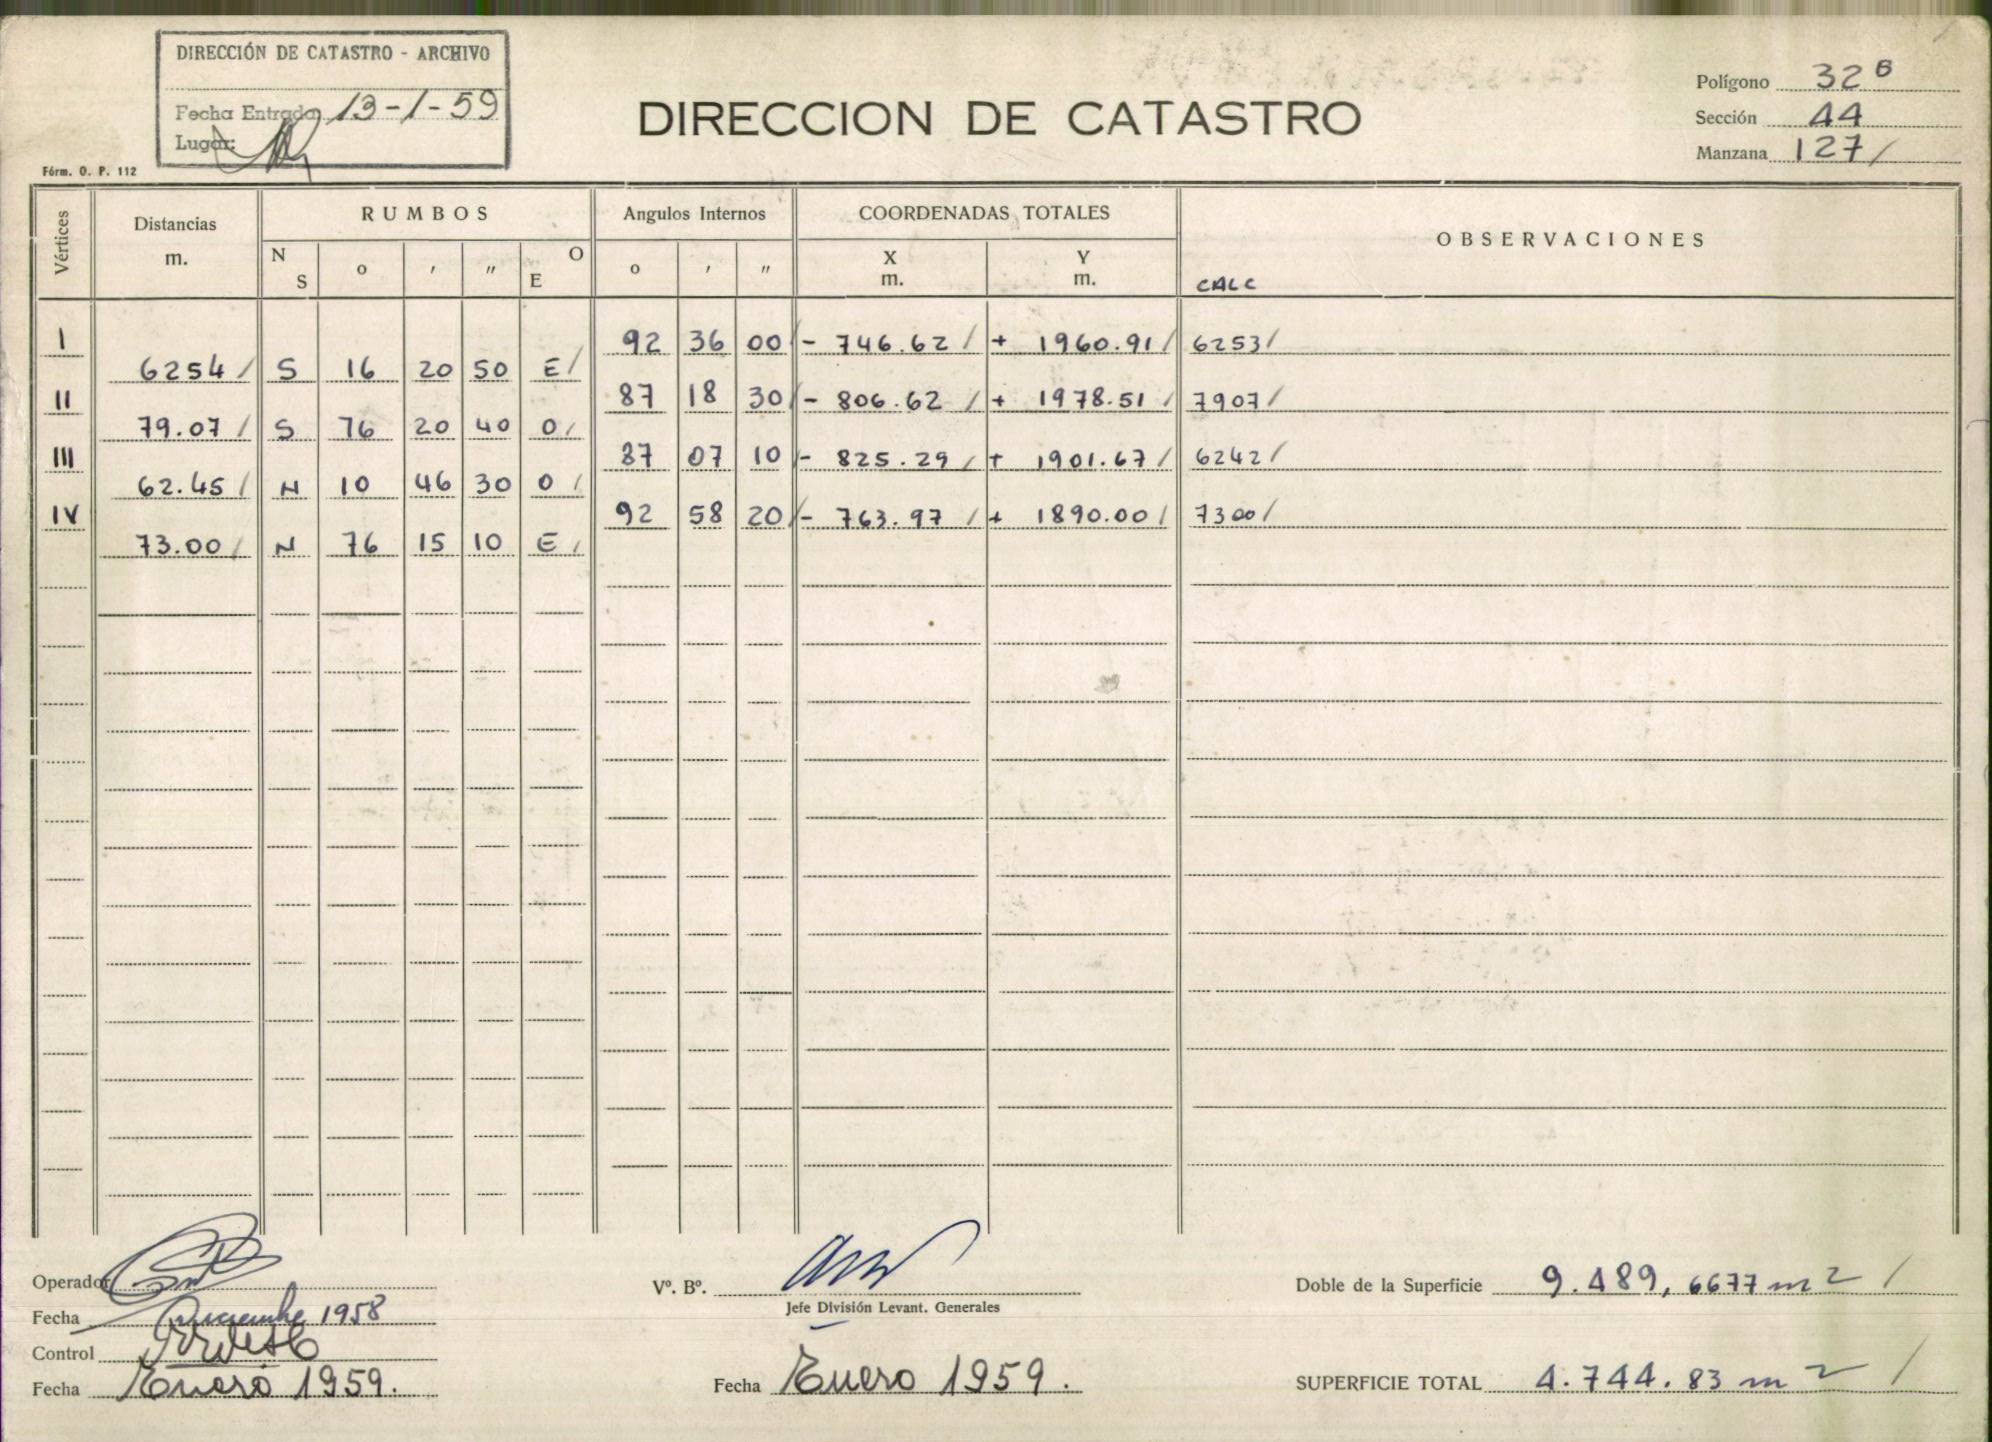 DIRECCIÓN DE CATASTRO - ARCHIVO
Fecha Entrada 13-1-59
Lugar:
DIRECCION DE CATASTRO
Polígono 32 B
Sección 44
Manzana 127/
Fórm. O. P. 112
Vértices Distancias m. RUMBOS N S o ′ ″ O E Angulos Internos o ′ ″ COORDENADAS TOTALES X m. Y m. OBSERVACIONES
CALC
I 92 36 00/ - 746.62 / + 1960.91/ 6253/
6254/ S 16 20 50 E/
II 87 18 30/ - 806.62 / + 1978.51/ 7907/
79.07/ S 76 20 40 O/
III 87 07 10/ - 825.29/ + 1901.67/ 6242/
62.45/ N 10 46 30 O/
IV 92 58 20/ - 763.97 / + 1890.00/ 7300/
73.00/ N 76 15 10 E/
Operador
Fecha Diciembre 1958
Control
Fecha Enero 1959.
Vº. Bº.
Jefe División Levant. Generales
Fecha Enero 1959.
Doble de la Superficie 9.489,6677 m2 /
SUPERFICIE TOTAL 4.744.83 m2 /